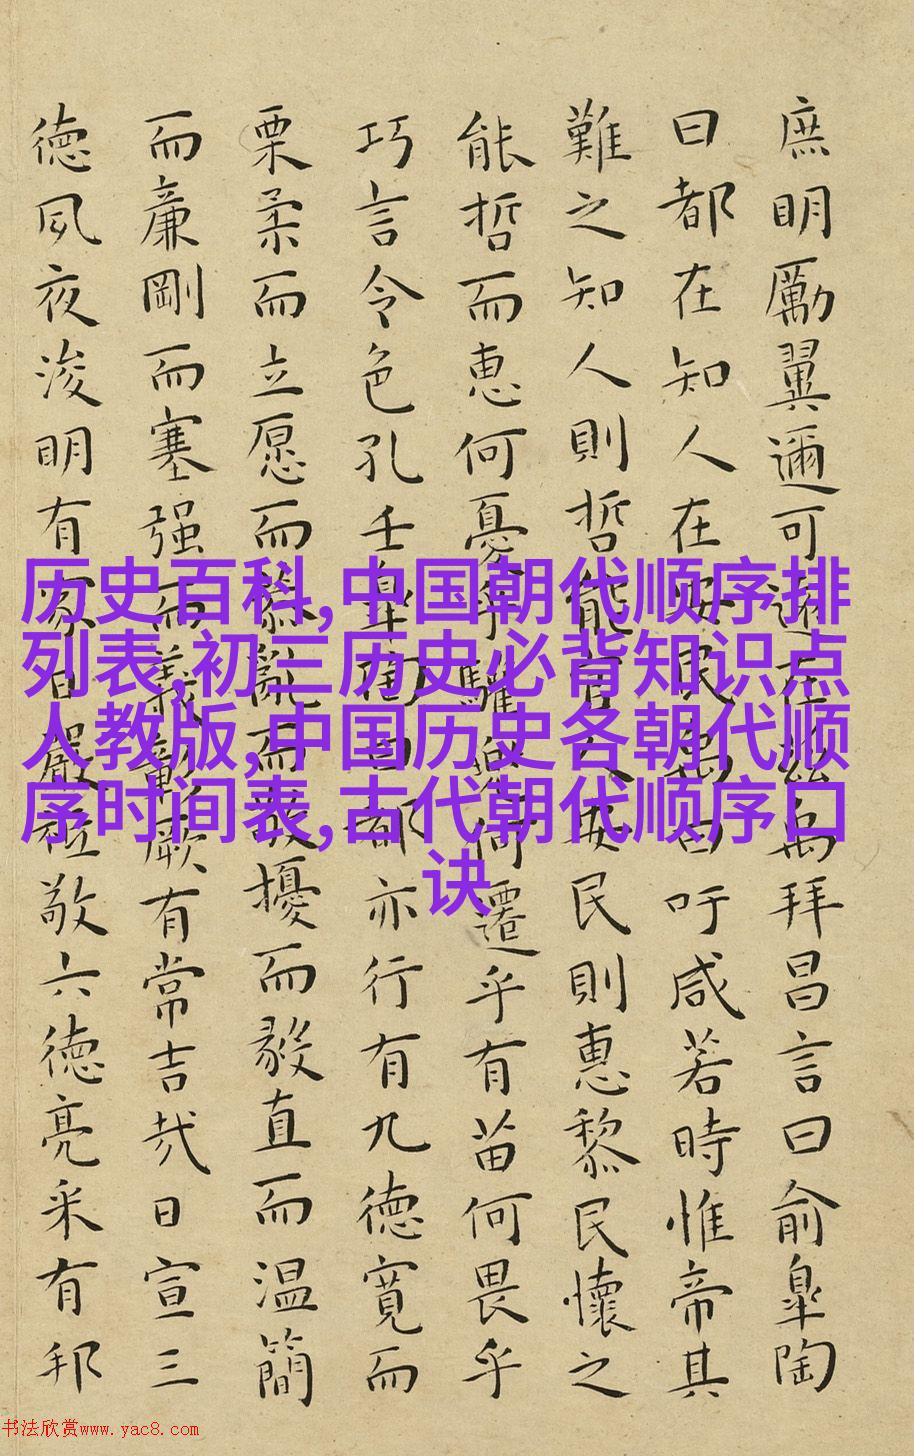 庶明勵翼邇可遠在兹禹拜昌言曰俞臯陶
曰都在知人在安民禹曰吁咸若時惟帝其
難之知人則哲能官人安民則惠黎民懷之
能哲而惠何憂乎驩兜何遷乎有苗何畏乎
巧言令色孔壬臯陶曰都亦行有九德寬而
栗柔而立愿而恭亂而敬擾而毅直而温簡
而廉剛而塞强而義彰厥有常吉哉日宣三
德夙夜浚明有家日嚴祗敬六德亮采有邦
历史百科,中国朝代顺序排
列表,初三历史必背知识点
人教版,中国历史各朝代顺
序时间表,古代朝代顺序口
诀
书法欣赏www.yac8.com